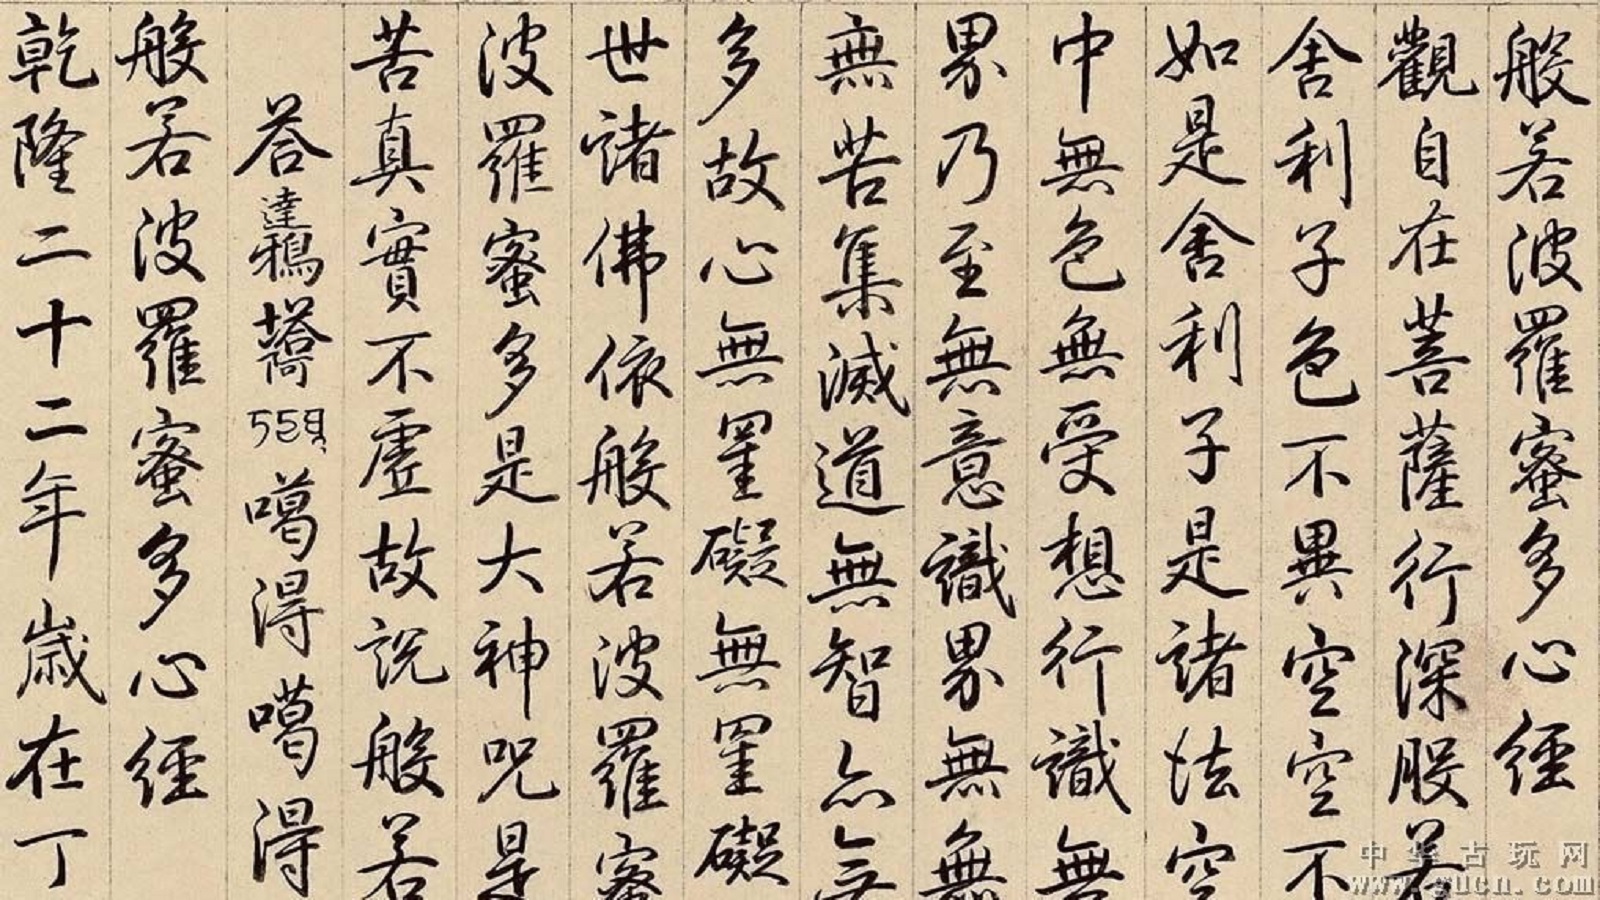 般若波羅蜜多心經
觀自在菩薩行深般若
舍利子色不異空空不
如是舍利子是諸法空
中無色無受想行識無
界乃至無意識界無無
無苦集滅道無智亦無
多故心無罣礙無罣礙
世諸佛依般若波羅蜜
波羅蜜多是大神咒是
苦真實不虛故說般若
荅達鴉噶得噶得
般若波羅蜜多心經
乾隆二十二年歲在丁
中华古玩网
www.gucn.com